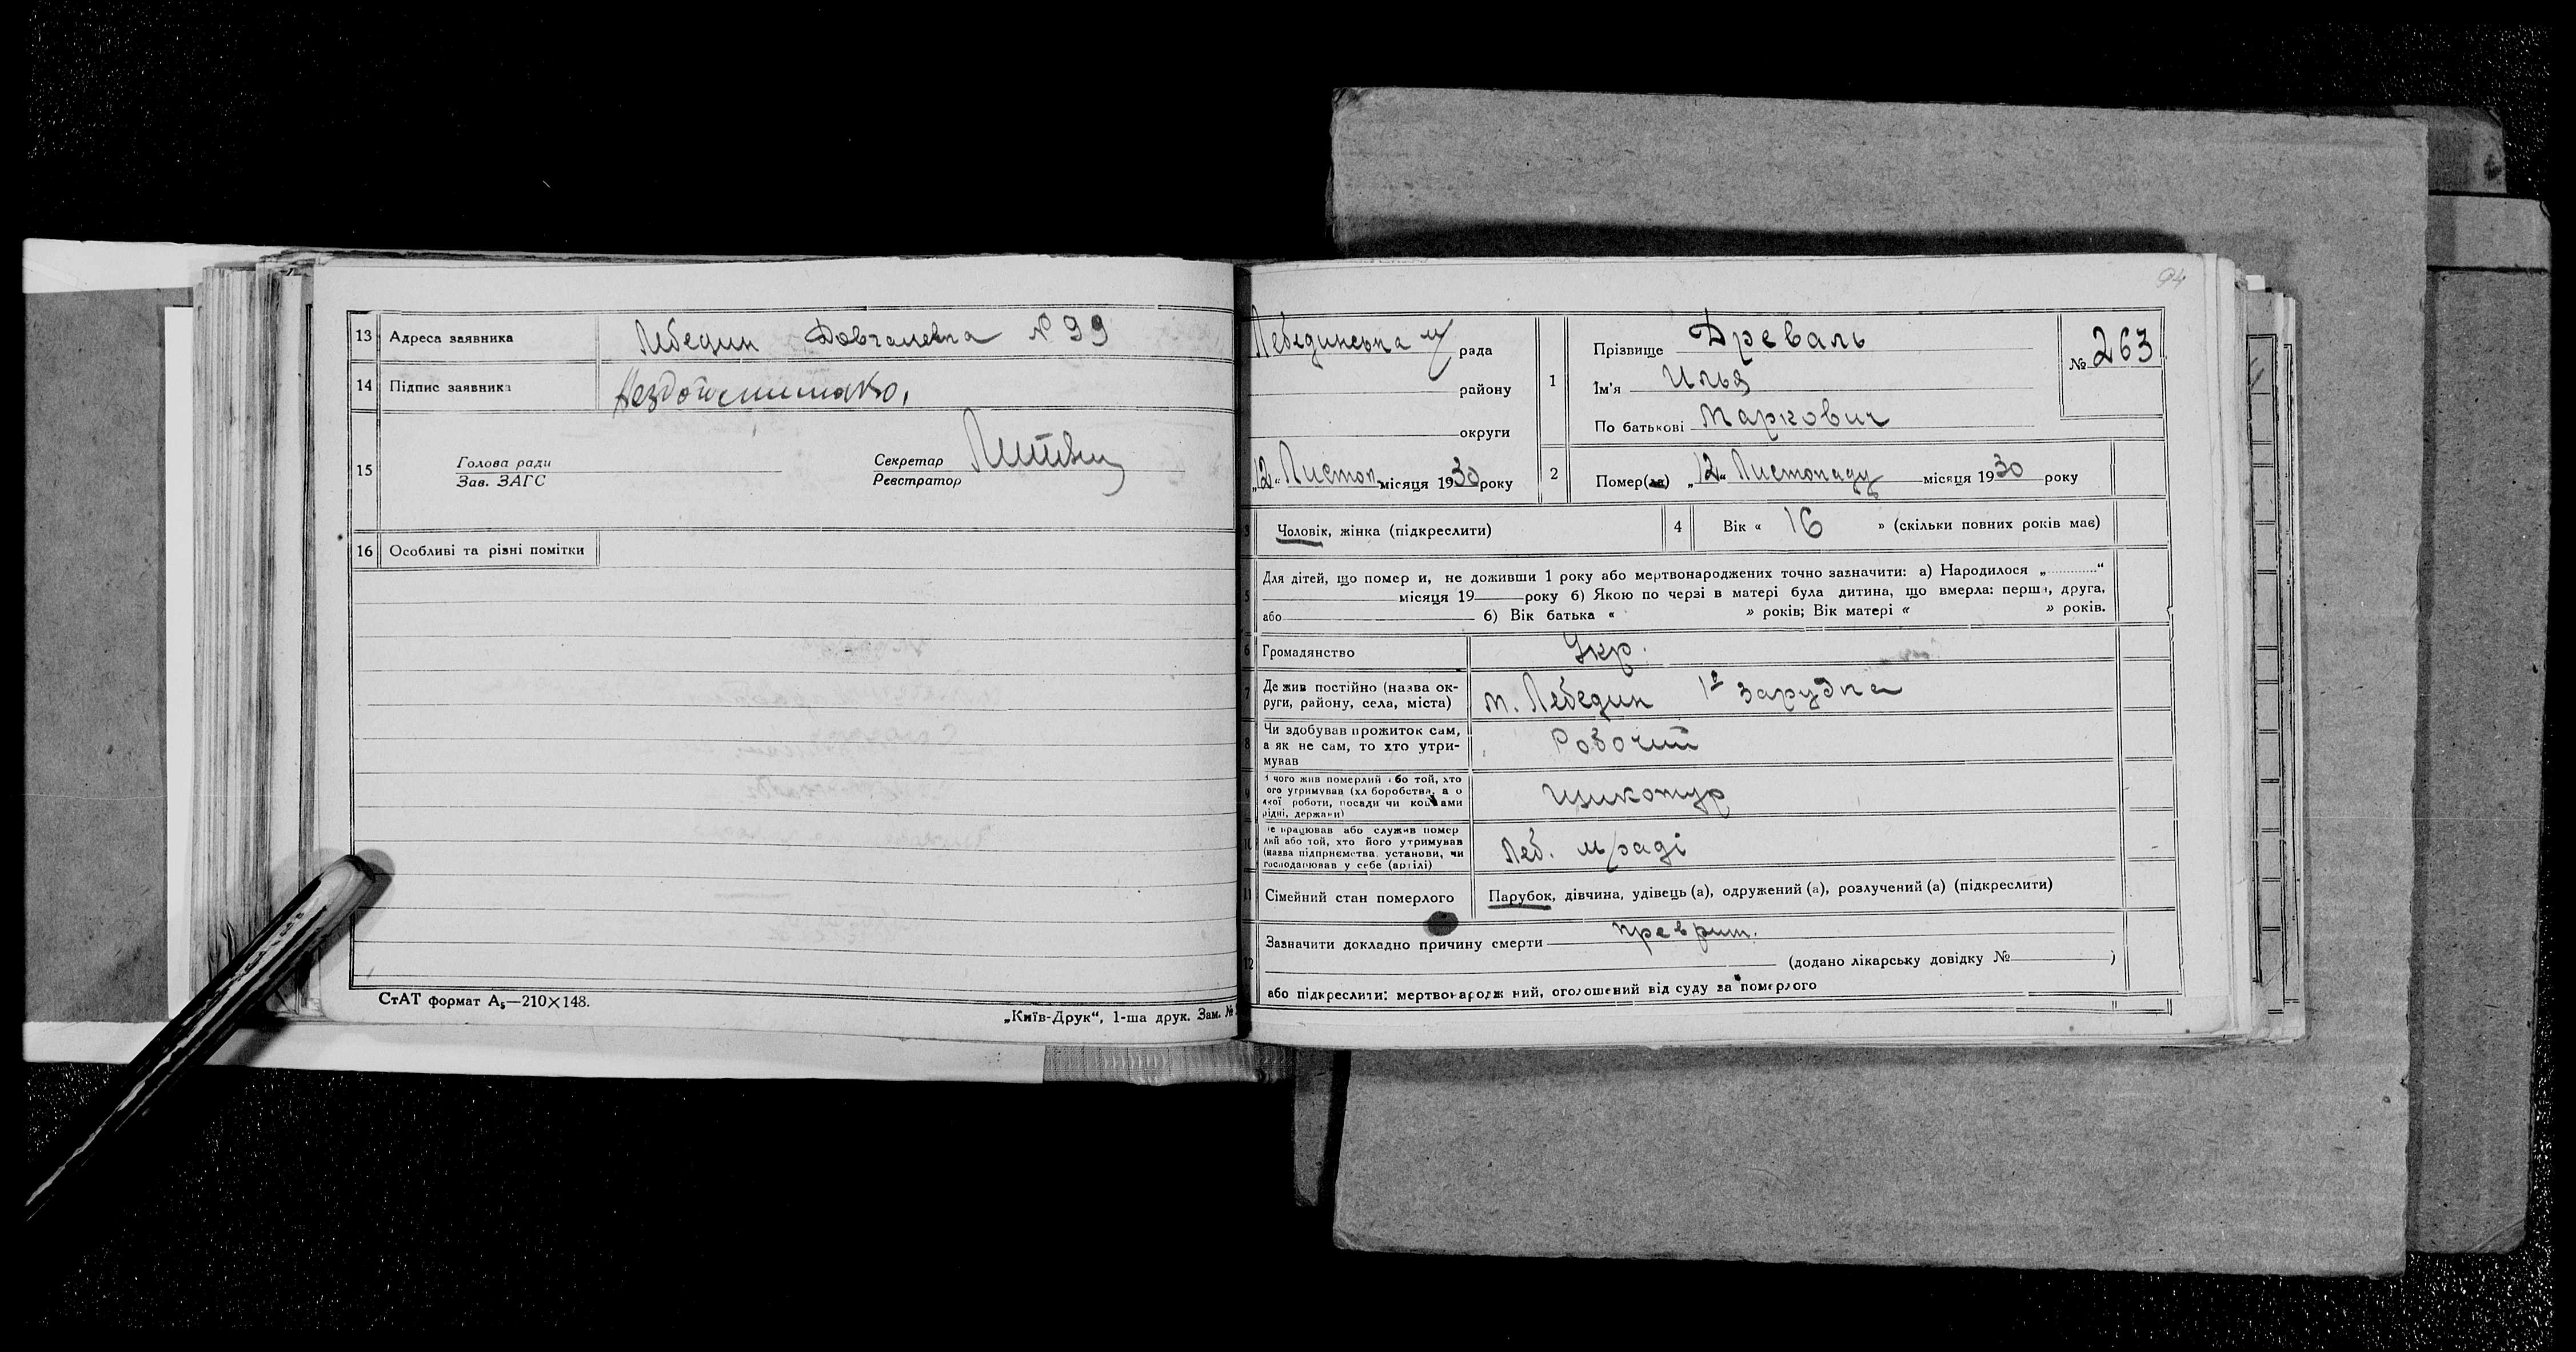 13 Адреса заявника Лебедин Довгалевка № 99
14 Підпис заявника
15 Голова ради
Зав. ЗАГС
Секретар
Реєстратор
16 Особливі та різні помітки
СтАТ формат А5—210×148.
„Київ-Друк“, 1-ша друк. Зам. №
94
Лебединська м/ рада
району
округи
„12“ Листоп. місяця 1930 року
1 Прізвище Древаль
Ім'я Илья
По батькові Маркович
№ 263
2 Помер(ла) „12“ Листопаду місяця 1930 року
3 Чоловік, жінка (підкреслити)
4 Вік « 16 » (скільки повних років має)
5 Для дітей, що помер и, не доживши 1 року або мертвонароджених точно зазначити: а) Народилося „ “
місяця 19 року б) Якою по черзі в матері була дитина, що вмерла: перша, друга,
або б) Вік батька « » років; Вік матері « » років.
6 Громадянство Укр.
7 Де жив постійно (назва ок-
руги, району, села, міста) м. Лебедин 1а Зарудка
8 Чи здобував прожиток сам,
а як не сам, то хто утри-
мував Робочий
9 З чого жив померлий або той, хто
ого утримував (хліборобства, а о
якої роботи, посади чи коштами
рідні, держави) Щикотур
10 Де працював або служив помер
лий або той, хто його утримував
(назва підприємства, установи, чи
господарював у себе (артілі) Леб. м/раді
11 Сімейний стан померлого Парубок, дівчина, удівець (а), одружений (а), розлучений (а) (підкреслити)
12 Зазначити докладно причину смерти преврит.
(додано лікарську довідку № )
або підкреслити: мертвонародж ний, оголошений від суду за померлого